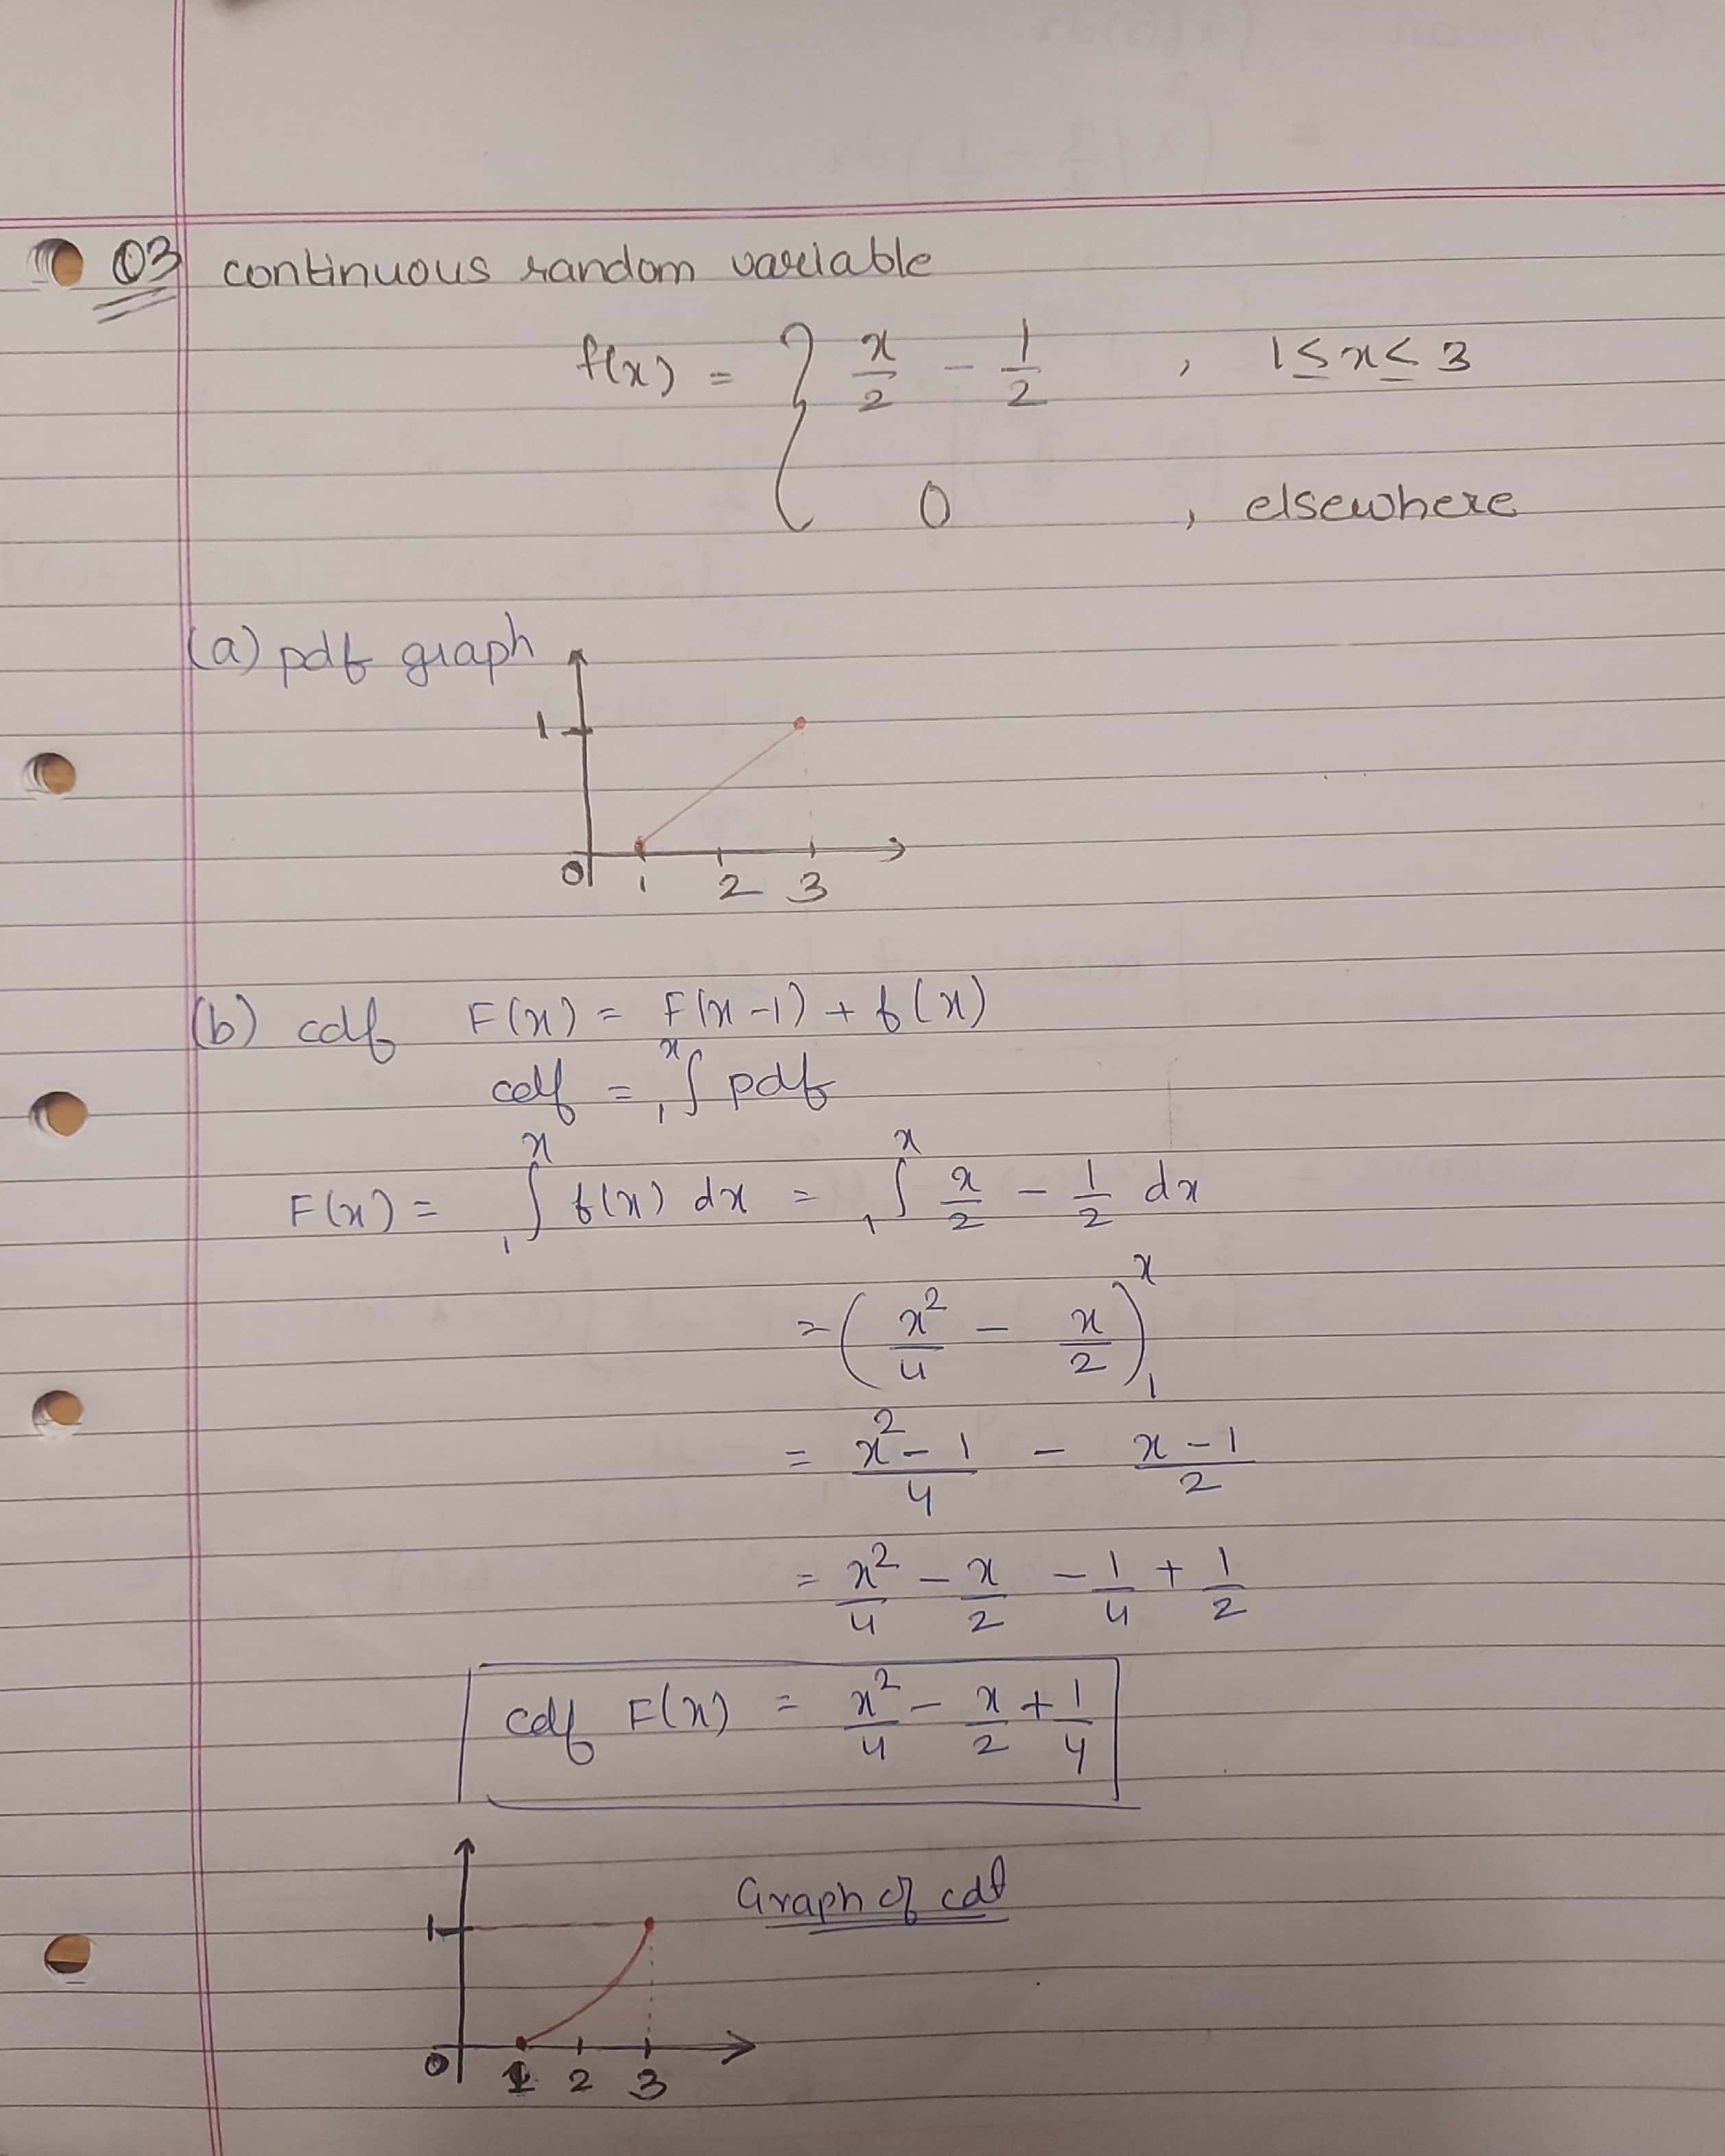 Q3 continuous random variable
f(x) = { x/2 - 1/2 , 1 ≤ x ≤ 3
0 , elsewhere
(a) pdf graph
1
0 1 2 3
(b) cdf F(x) = F(x-1) + f(x)
cdf = ₁∫ˣ pdf
F(x) = ₁∫ˣ f(x) dx = ₁∫ˣ x/2 - 1/2 dx
= (x²/4 - x/2)₁ˣ
= (x² - 1)/4 - (x - 1)/2
= x²/4 - x/2 - 1/4 + 1/2
cdf F(x) = x²/4 - x/2 + 1/4
Graph of cdf
1
0 1 2 3